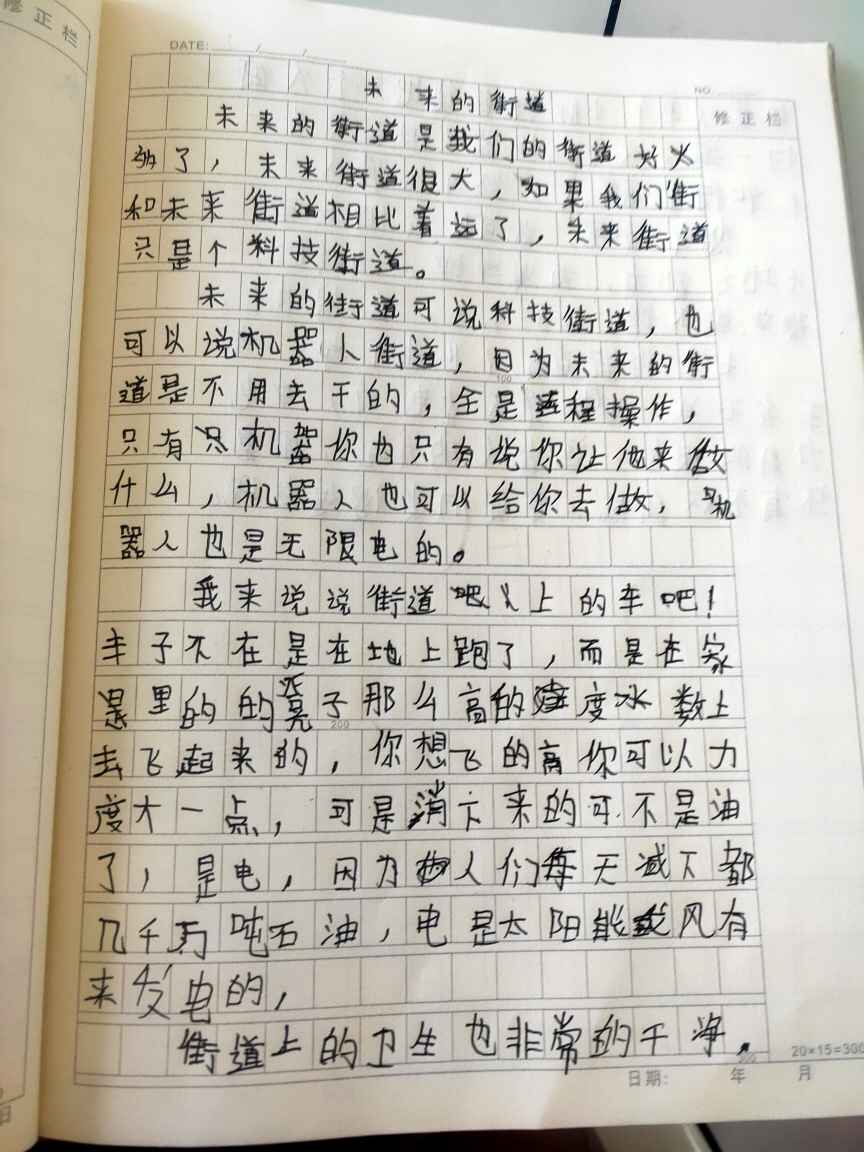 修正栏
DATE: / /
NO
修正栏
未来的街道
未来的街道是我们的街道好火
了，未来街道很大，如果我们街
和未来街道相比着远了，未来街道
只是个科技街道。
未来的街道可说科技街道，也
可以说机器人街道，因为未来的街
100
道是不用去干的，全是远程操作，
只有只机器你也只有说你让他来做
什么，机器人也可以给你去做，机
器人也是无限电的。
我来说说街道吧上的车吧！
车子不在是在地上跑了，而是在家
里的的凳子那么高的度水数上
200
去飞起来的，你想飞的高你可以力
度大一点，可是消下来的可不是油
了，是电，因为人们每天减下都
几千万吨石油，电是太阳能或风有
来发电的，
街道上的卫生也非常的干净
300
20×15=300
日期： 年 月
日